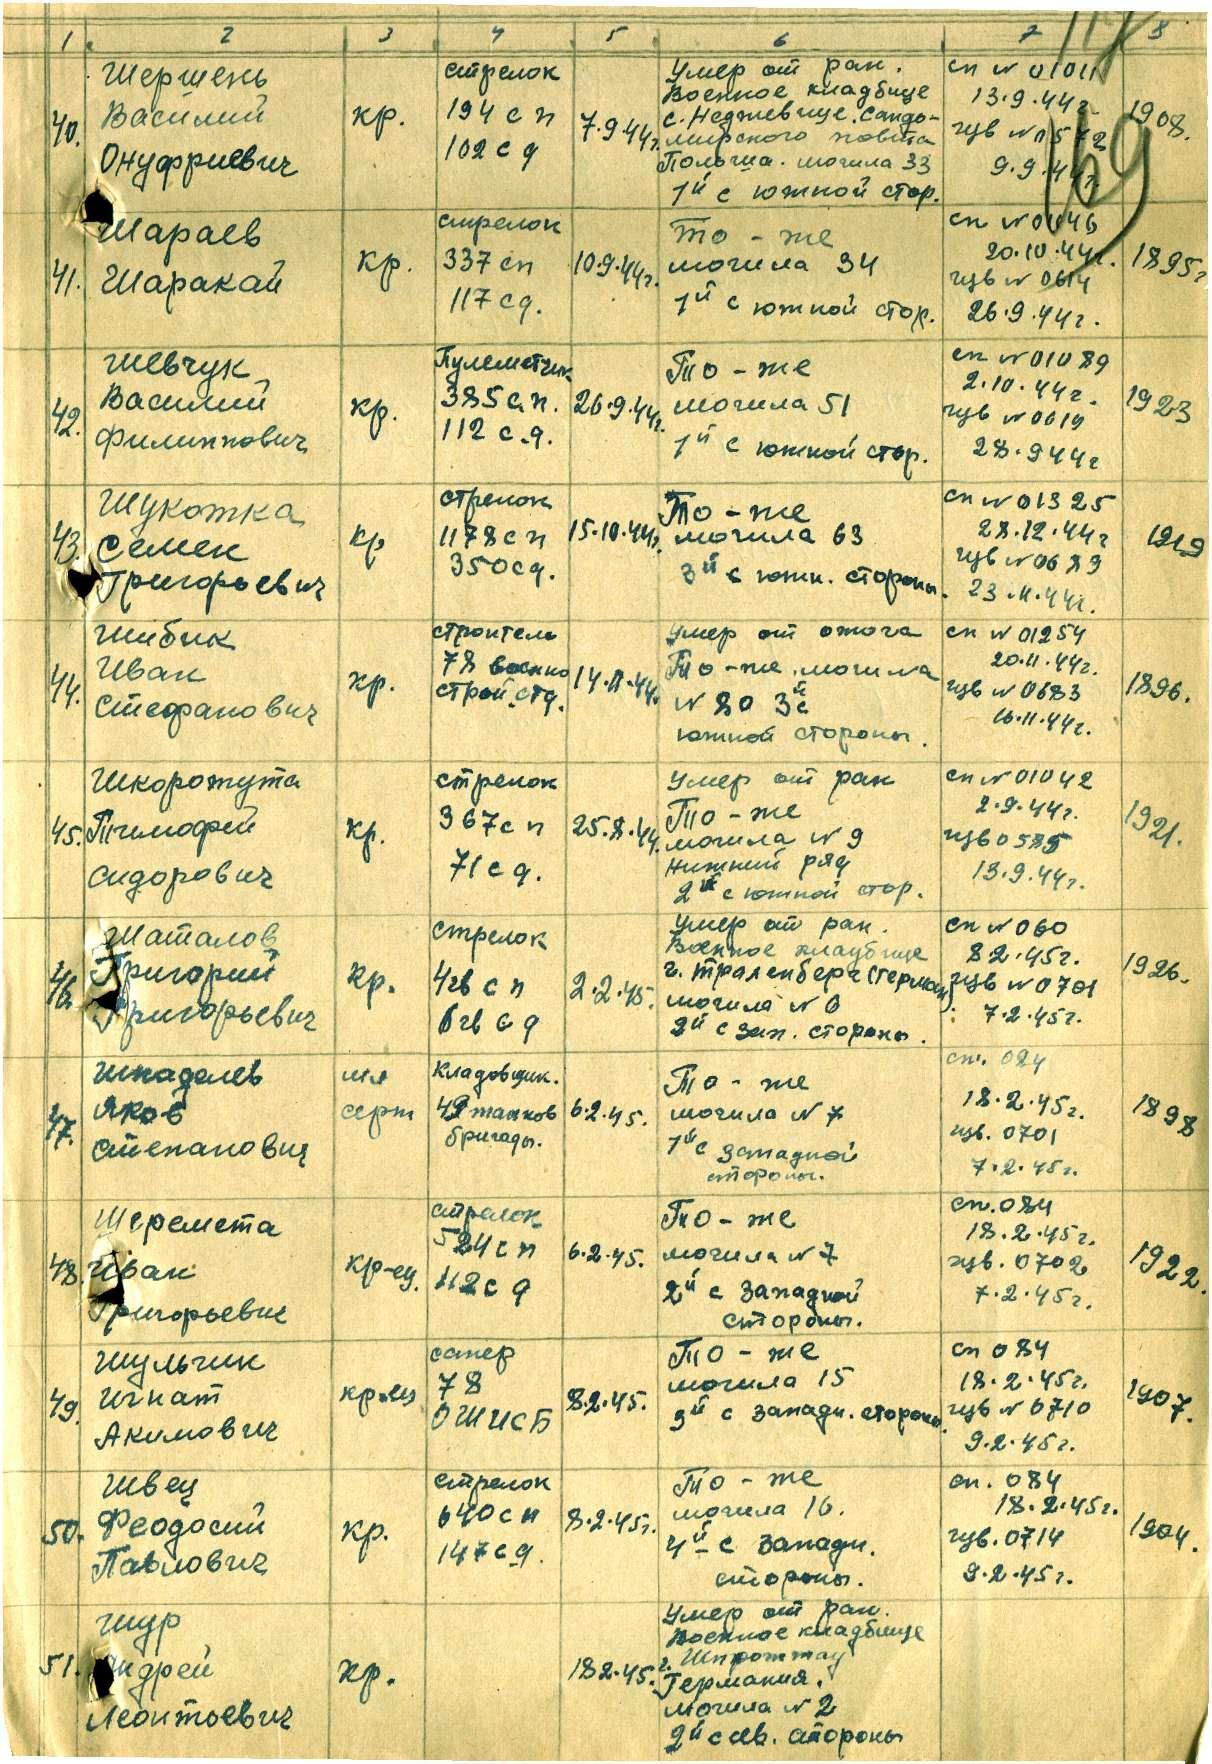 1 2 3 4 5 6 7 8
169
40.
Шершень
Василий
Онуфриевич
кр.
стрелок
194 с п
102 с д
7.9.44г.
Умер от ран.
Военное кладбище
с. Неджевице. Сандо-
мирского повета
Польша. могила 33
1й с южной стор.
сп № 01011
13.9.44г
гцв № 0572
9.9.44г.
1908.
41.
Шараев
Шаракай
кр.
стрелок
337 сп
117 сд.
10.9.44г.
то - же
могила 34
1й с южной стор.
сп № 0
20.10.44г.
гцв № 0614
26.9.44г.
1895г
42.
Шевчук
Василий
Филиппович
кр.
Пулеметчик
385 с.п.
112 с.д.
26.9.44г.
То - же
могила 51
1й с южной стор.
сп № 01089
2.10.44г.
гцв № 0619
28.9 44г
1923
43.
Шукотка
Семен
Григорьевич
кр
стрелок
1178 с п
350 сд.
15.10.44г.
То - же
могила 63
3й с южн. стороны.
сп № 01325
28.12.44г
гцв № 0689
23.11.44г.
1919
44.
Шибик
Иван
Стефанович
кр.
строитель
78 военно
строй. отд.
14.11.44.
Умер от ожога
То - же могила
№ 80 3й с
южной стороны.
сп № 01254
20.11.44г.
гцв № 0683
16.11.44г.
1896.
45.
Шкорожута
Тимофей
Сидорович
кр.
стрелок
367 с п
71 с д.
25.8.44.
Умер от ран
То - же
могила № 9
Нижний ряд
2й с южной стор.
сп № 01042
2.9.44г.
гцв 0585
13.9.44г.
1921.
46.
Шаталов
Григорий
Григорьевич
кр.
стрелок
4гв с п
6гв с д
2.2.45.
Умер от ран.
Военное кладбище
г. Траленберг (Герман)
могила № 6
2й с зап. стороны.
сп № 060
8 2.45г.
гцв № 0701
7.2.45г.
1926.
47.
Шкадалев
Яков
Степанович
мл
серж
Кладовщик.
49 танков
бригады.
6.2.45.
То - же
могила № 7
1й с западной
стороны.
сп. 084
18.2.45г.
гцв. 0701
7.2.45г.
1898
48.
Шеремета
Иван
Григорьевич
кр-ец.
стрелок
524 с п
112 с д
6.2.45.
То - же
могила № 7
2й с западной
стороны.
сп. 084
18.2.45г.
гцв. 0702
7.2.45г.
1922.
49.
Шульчик
Игнат
Акимович
кр-ец
сапер
78
ОШИСБ
8.2.45.
То - же
могила 15
3й с западн. стороны.
сп 084
18.2.45г.
гцв № 0710
9.2.45г.
1907.
50.
Швец
Феодосий
Павлович
кр.
стрелок
640 с п
147 сд.
8.2.45г.
То - же
могила 16.
4й с западн.
стороны.
сп. 084
18.2.45г.
гцв. 0714
9.2.45г.
1904.
51.
Шур
Андрей
Леонтоевич
кр.
18.2.45.
Умер от ран.
Военное кладбище
г. Шпроттау
Германия.
могила № 2
2й с св. стороны